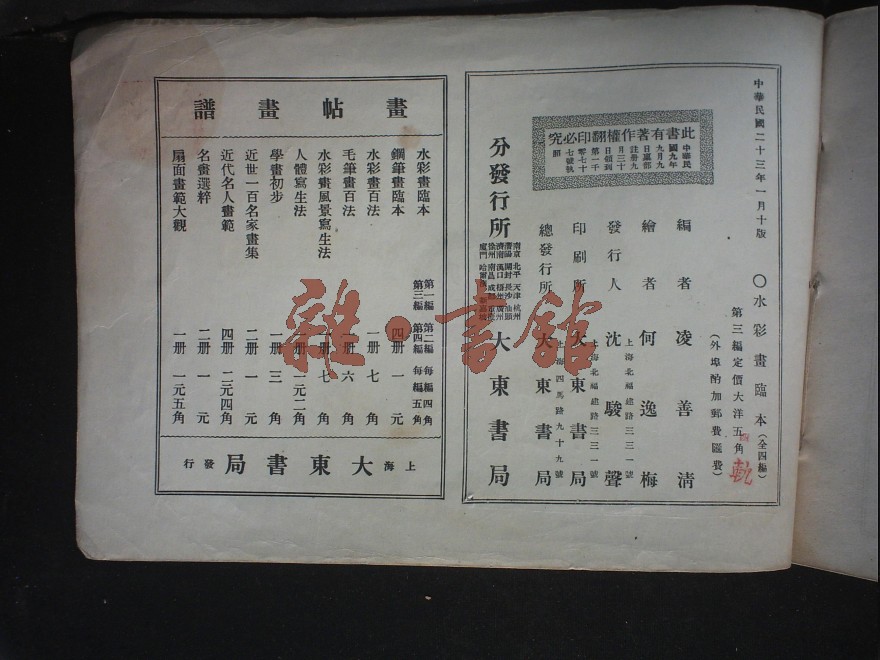 中華民國二十三年一月十版
〇水彩畫臨本（全四編）
第三編定價大洋五角
（外埠酌加郵費匯費）
編者 凌善清
繪者 何逸梅
上海北福建路三三一號
發行人 沈駿聲
上海北福建路三三一號
印刷所 大東書局
上海四馬路九十九號
總發行所 大東書局
分發行所 大東書局
南京 北平 天津 杭州
開封 長沙 汕頭
濟南 漢口 梧州 廣州
徐州 南昌 成都 重慶
廈門
此書有著作權翻印必究
中華民國九年九月九日稟部註冊九月三十日領到第一千零七十七號執照
畫帖畫譜
水彩畫臨本 第一編 第二編 每編四角
第三編 第四編 每編五角
鋼筆畫臨本 四册 一元
水彩畫百法 一册 七角
毛筆畫百法 一册 六角
水彩畫風景寫生法 一册 七角
人體寫生法 一册 一元二角
學畫初步 一册 三角
近世一百名家畫集 二册 一元
近代名人畫範 四册 二元四角
名畫選粹 二册 一元
扇面畫範大觀 一册 一元五角
上海大東書局發行
雜·書館